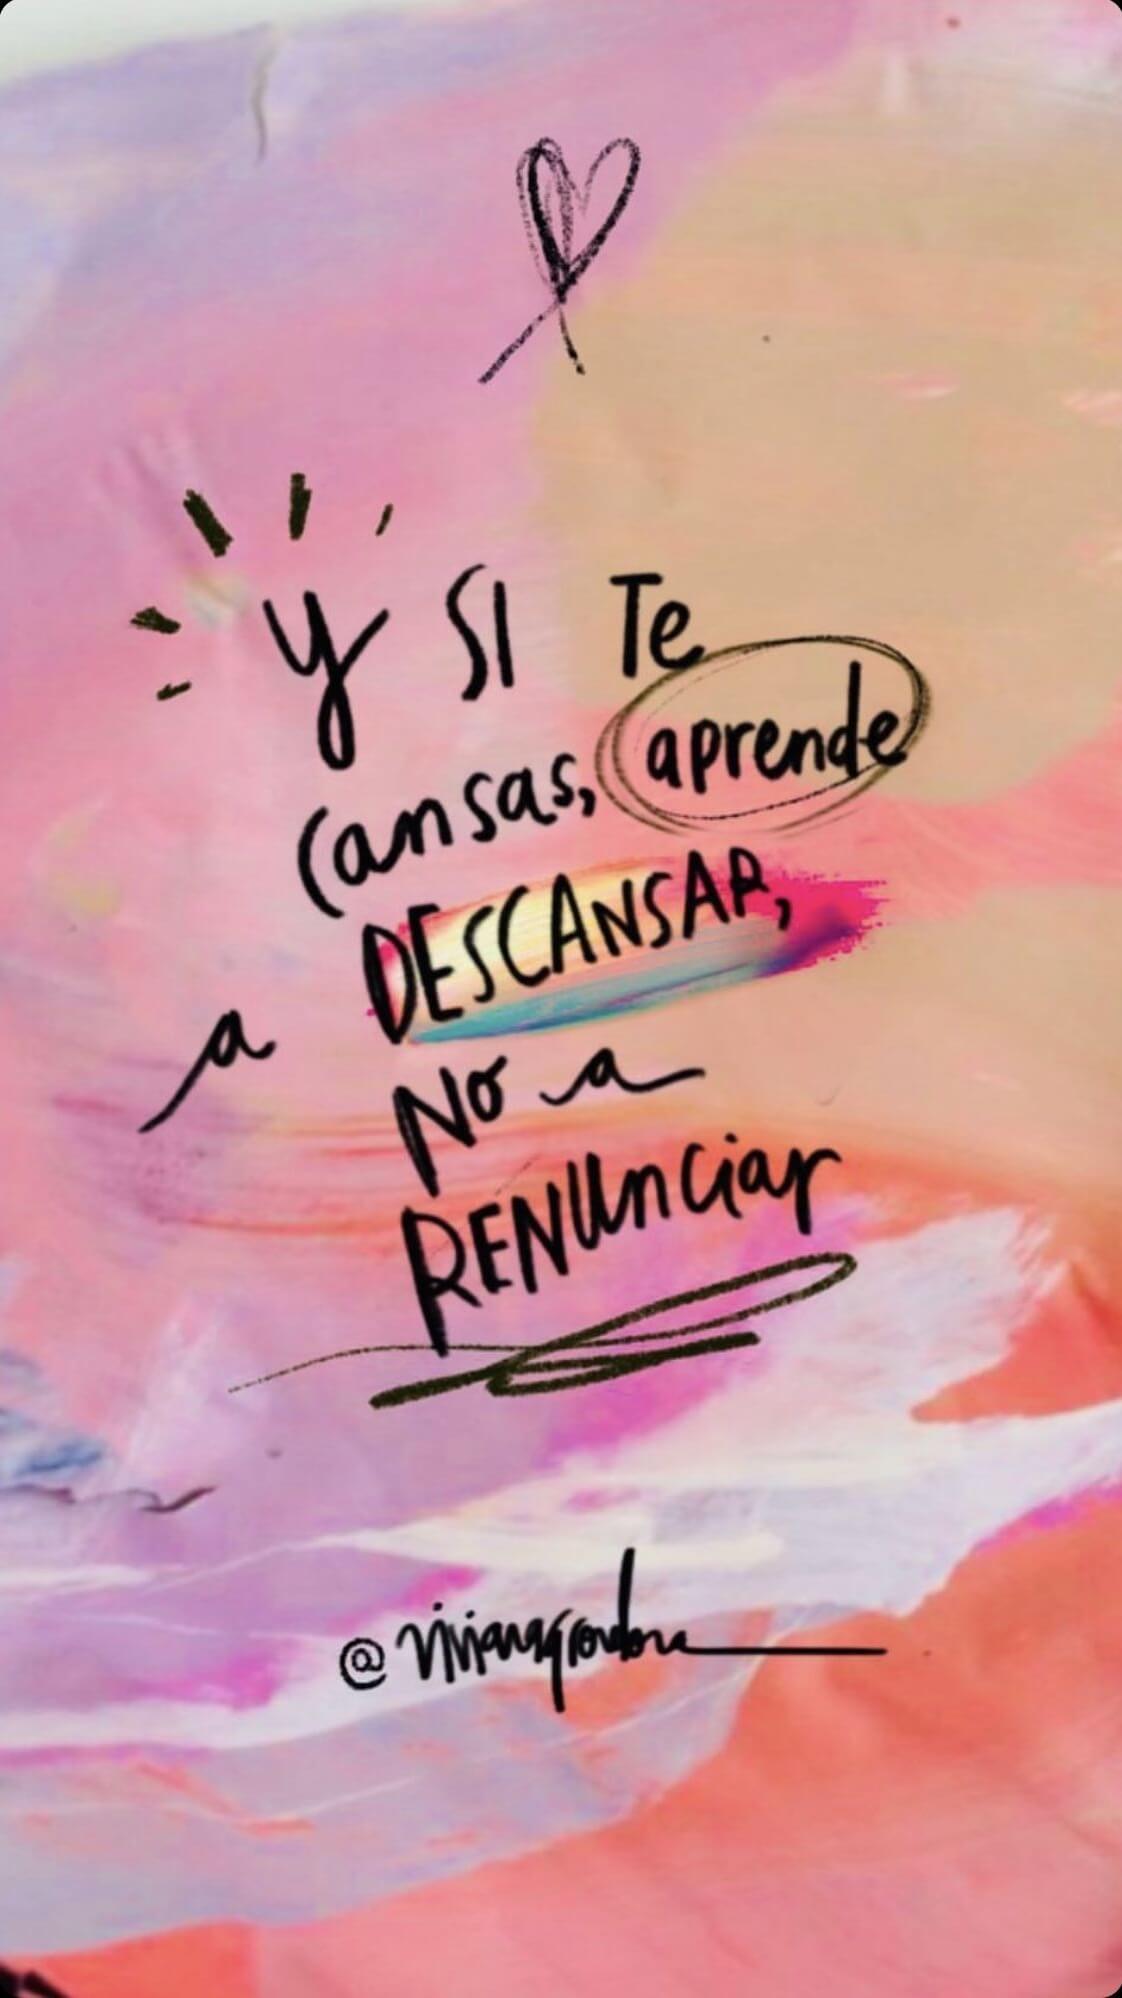 Y SI Te
Cansas, aprende
a DESCANSAR,
No a
RENUnciar
@vivianagrondona